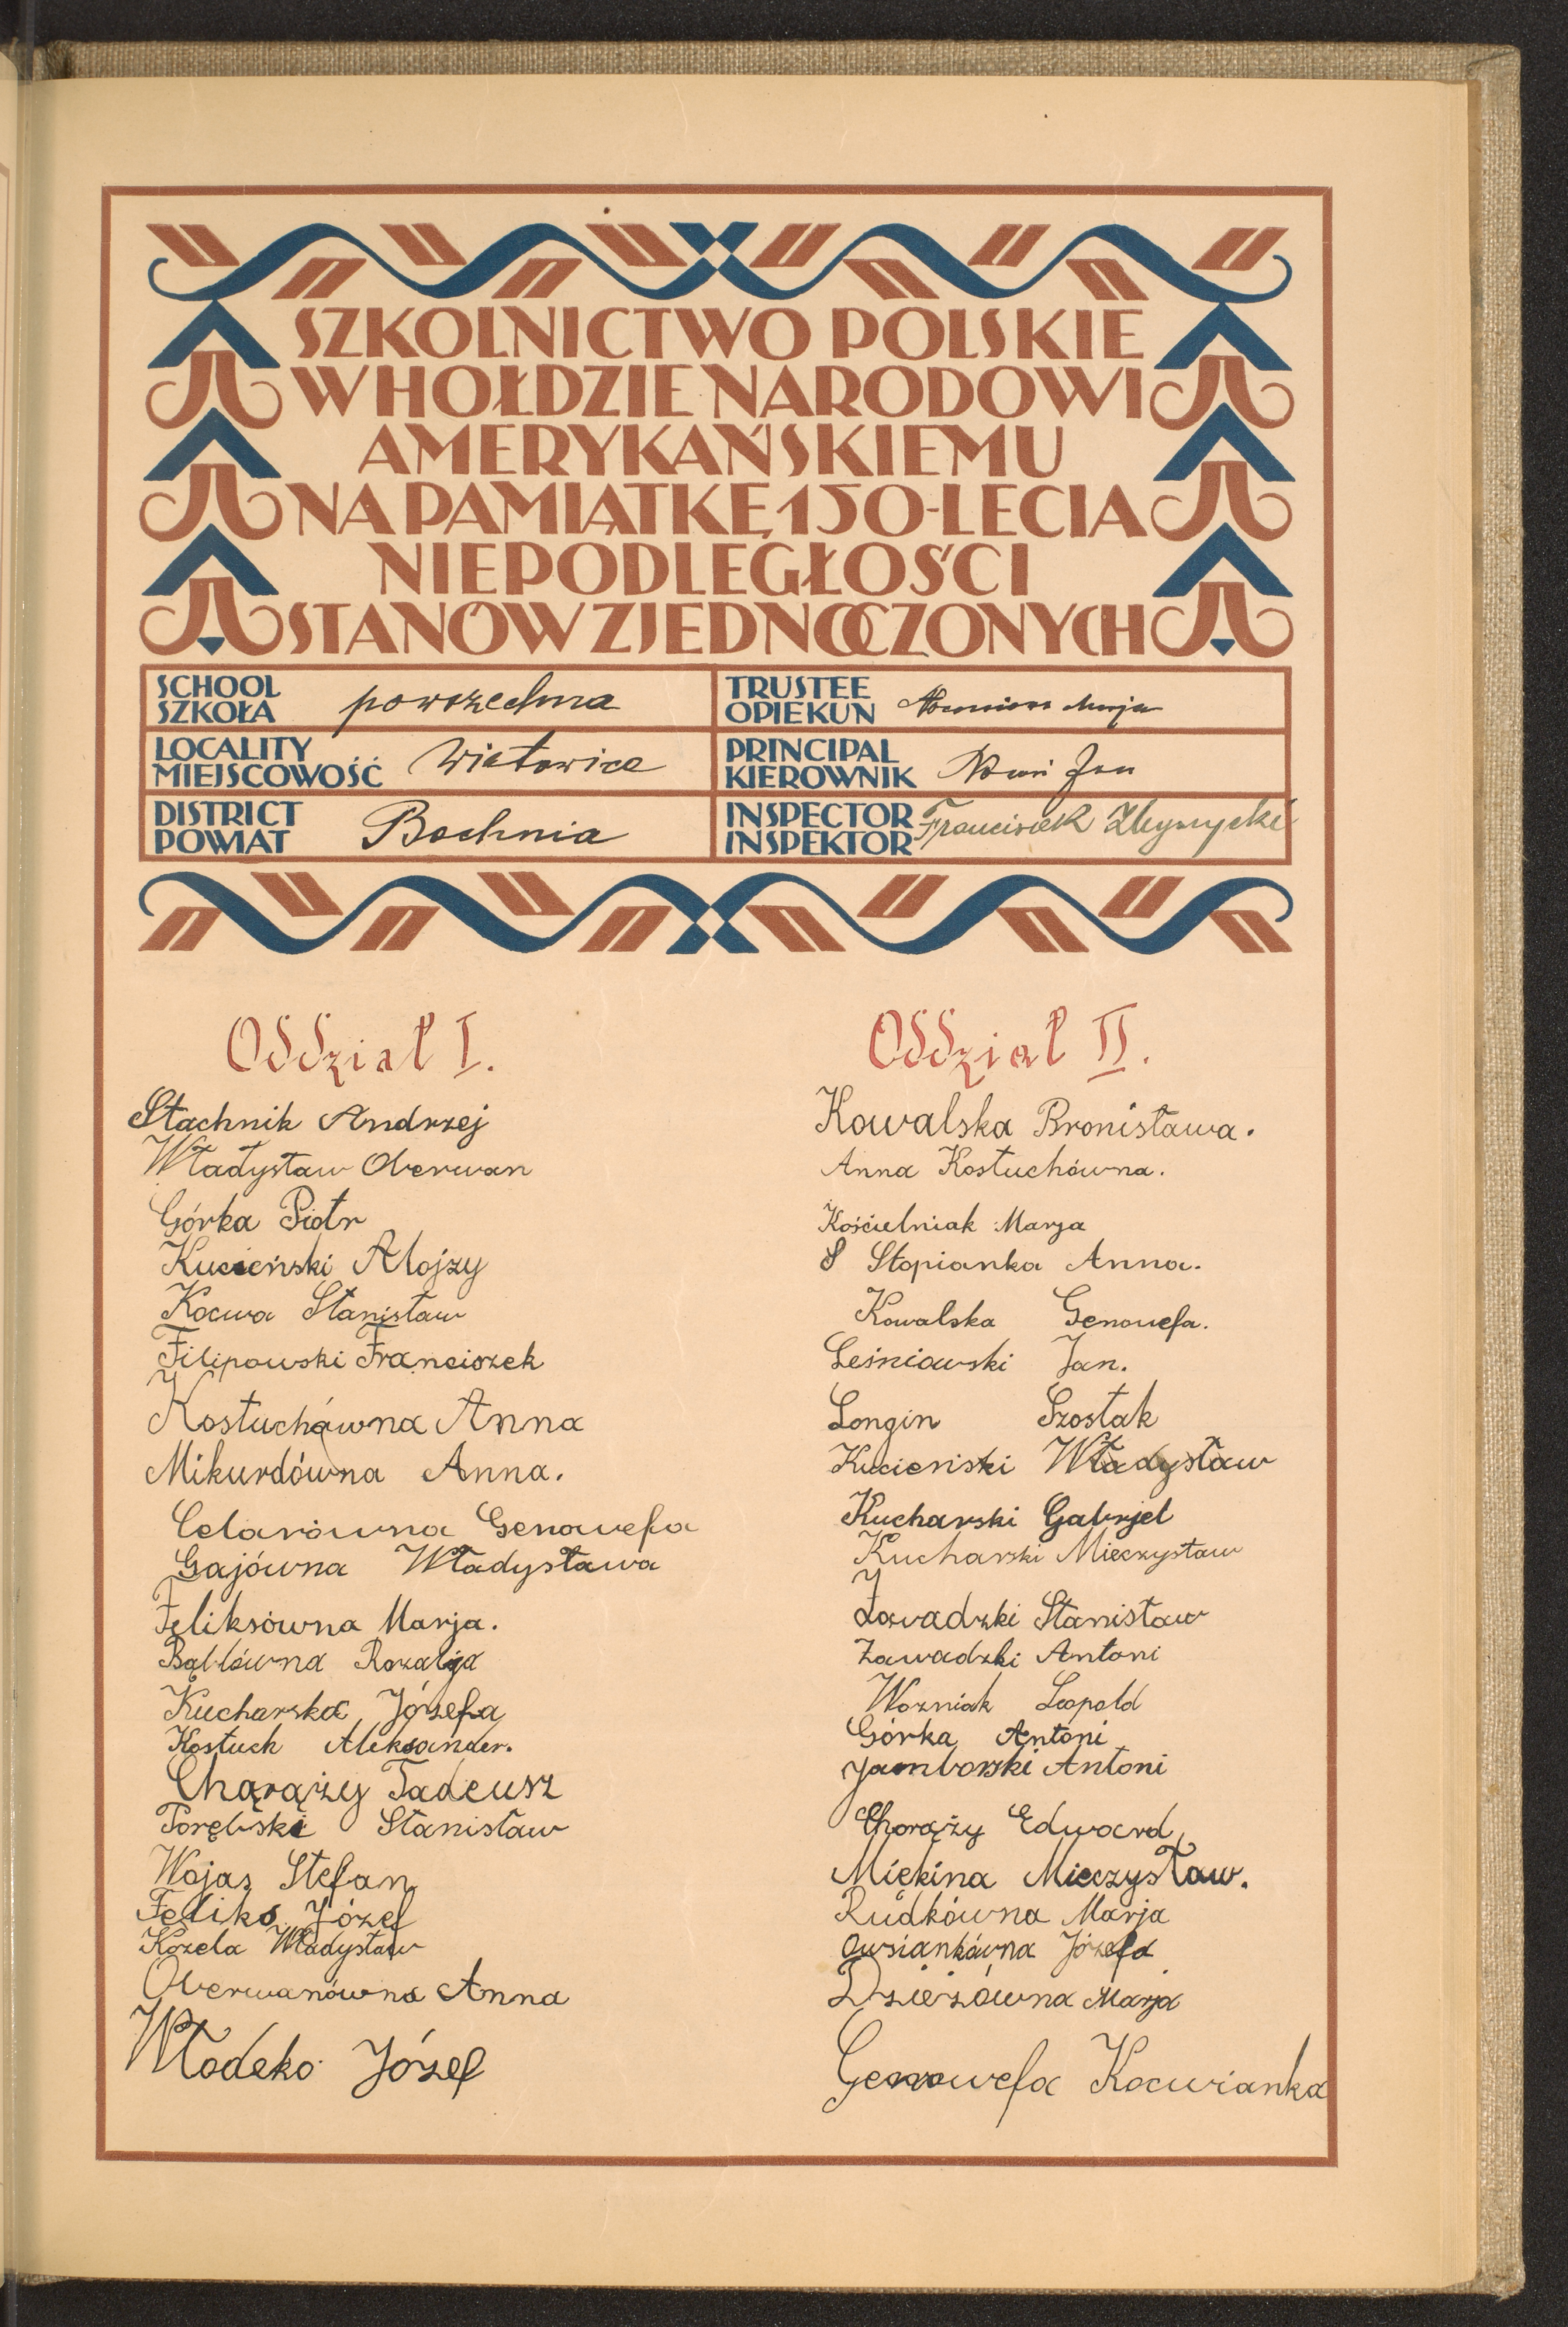 SZKOLNICTWO POLSKIE
W HOŁDZIE NARODOWI
AMERYKAŃSKIEMU
NA PAMIĄTKĘ 150-LECIA
NIEPODLEGŁOŚCI
STANÓW ZJEDNOCZONYCH
SCHOOL
SZKOŁA powszechna
TRUSTEE
OPIEKUN Marja
LOCALITY
MIEJSCOWOŚĆ Wiatowice
PRINCIPAL
KIEROWNIK Jan
DISTRICT
POWIAT Bochnia
INSPECTOR
INSPEKTOR Franciszek
Oddział I.
Stachnik Andrzej
Władysław Oberwan
Górka Piotr
Kucieński Alojzy
Kocwa Stanisław
Filipowski Franciszek
Kostuchówna Anna
Mikurdówna Anna.
Celarówna Genowefa
Gajówna Władysława
Feliksówna Marja.
Bąblówna Rozalja
Kucharska Józefa
Kostuch Aleksander.
Chąrąży Tadeusz
Porębski Stanisław
Wojas Stefan
Feliks Józef
Kozela Władysław
Oberwanówna Anna
Włodeko Józef
Oddział II.
Kowalska Bronisława.
Anna Kostuchówna.
Kościelniak Marja
S Stopianka Anna.
Kowalska Genowefa.
Leśniowski Jan.
Longin Szostak
Kucieński Władysław
Kucharski Gabrjel
Kucharski Mieczysław
Zawadzki Stanisław
Zawadzki Antoni
Wozniak Leopold
Górka Antoni
Jamborski Antoni
Chorąży Edward
Miękina Mieczysław.
Rudkówna Marja
Owsiankówna Józefa
Dzieżówna Marja
Genowefa Kocwianka